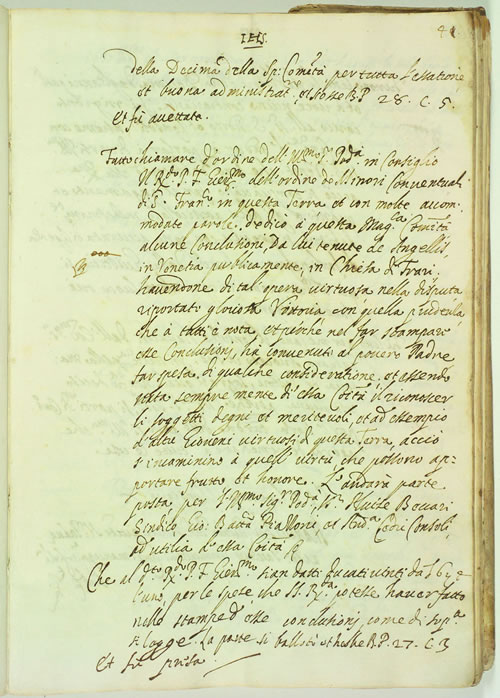 41
1615
della Decima della Sp: Comtà per tutta l'essatione
et buona administrat. et hebbe B. P. 28. C. 5.
Et fù accettata.
Fatto chiamare d'ordine dell' Illmo Sr Podà in Consiglio
Il Rdo P. F. dell'ordine de Minori Conventuali
di S. Franco in questa Terra et con molte accom-
modate parole, dedicò à questa Magca Comtà
alcune Conclusioni Da lui tenute de Angelis
in Venetia publicamente, in Chiesa di Frari
havendone di tal opera virtuosa nella disputa
riportato gloriosa Vittoria con quella prudentia
che à tutti è nota, et perche nel far stampare
esse Conclusioni, hà convenuto al povero Padre
far spesa di qualche consideratione, et essendo
stata sempre mente di essa Comtà il riconoscer
li soggetti degni et meritevoli, et ad essempio
d'altri Gioveni virtuosi di questa Terra, acciò
s'incaminino à quell' virtù che possono ap-
portare frutto et honore. L'andarà parte
posta per l'Illmo Sigr Podà, Sr Aluise
Sindico Gio: Batta et Consoli
ad utilia d'essa Comtà
Che al dto Rdo P. F. sian datti Ducati vinti da £ 6:
l'uno, per le spese che S. Rtia potesse haver fatto
nelle stampe d' esse conclusioni, come di sopa
si legge. La parte si ballotò et hebbe B. P. 27. C. 3
Et fù presa.